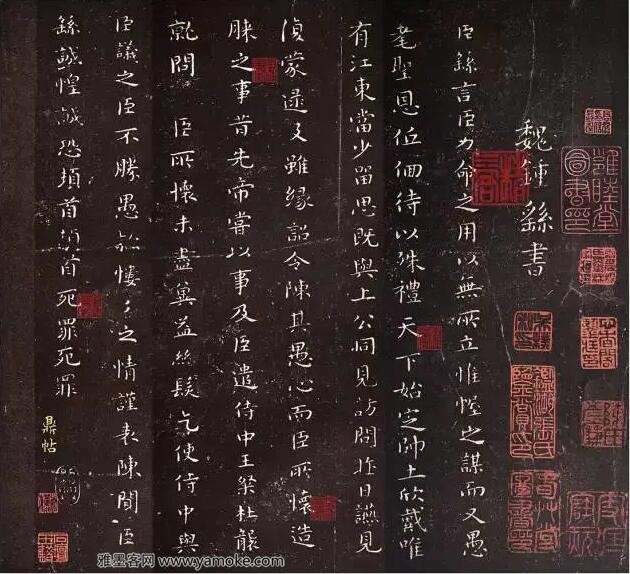 魏鍾繇書
臣繇言臣力命之用以無所立惟幄之謀而又愚
耄聖恩低佪待以殊禮天下始定帥土欣戴唯
有江東當少留思既與上公同見訪問昨日讌見
復蒙逮及雖緣詔令陳其愚心而臣所懷造
膝之事昔先帝嘗以事及臣遣侍中王粲杜襲
就問 臣所懷未盡冀益絲髮乞使侍中與
臣議之臣不勝愚款慺々之情謹表陳聞臣
繇誠惶誠恐頓首頓首死罪死罪
鼎帖
雅墨客网 www.yamoke.com